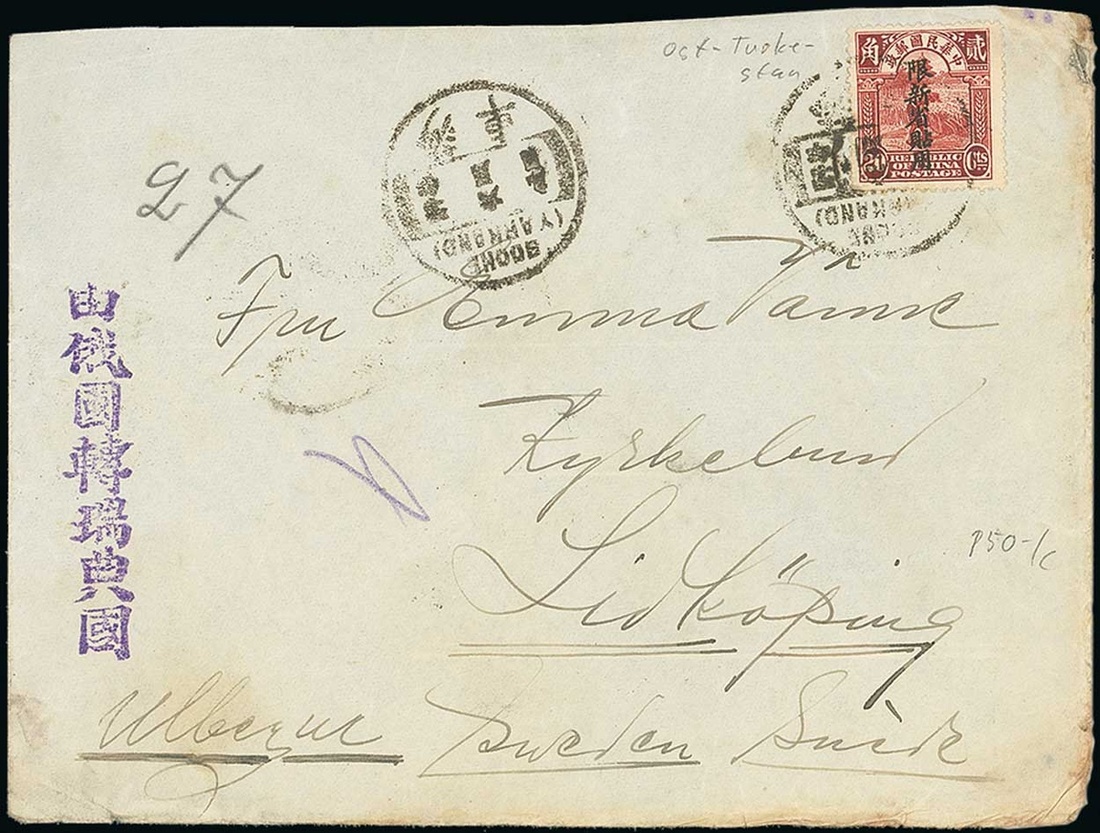 Ost-Turke-
stan
角 政郵國民華中 貳
限新省貼用
20 REPUBLIC Cts
OF CHINA
POSTAGE
27
SOCHE
(YARKAND)
SOCHE
(YARKAND)
由俄國轉瑞典國
Fru Emma
Kyrkebund
Lidköping
Sweden Suède